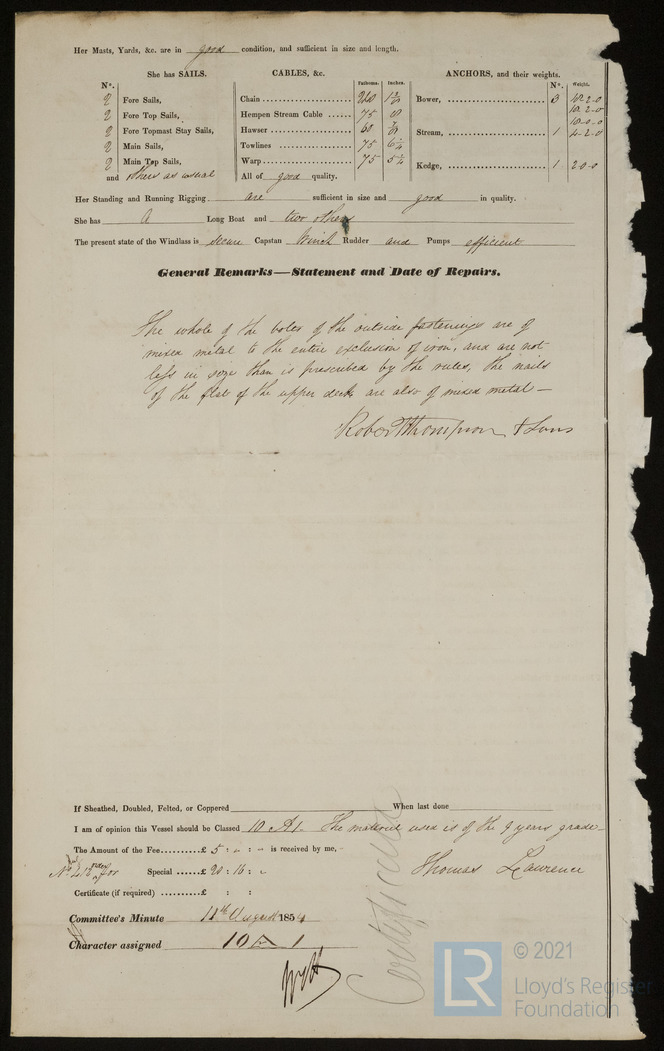 Her Masts, Yards, &c. are in good condition, and sufficient in size and length.
She has SAILS. CABLES, &c. ANCHORS, and their weights.
N°. Fathoms. Inches. N°. Weight.
2 Fore Sails, Chain 240 Bower, 3
2 Fore Top Sails, Hempen Stream Cable 75 8
2 Fore Topmast Stay Sails, Hawser 60 7 Stream, 1 4-2-0
2 Main Sails, Towlines 75
2 Main Top Sails, Warp 75 Kedge, 1 2-0-0
and others as usual All of good quality.
Her Standing and Running Rigging are sufficient in size and good in quality.
She has A Long Boat and two others
The present state of the Windlass is secure Capstan Winch Rudder and Pumps efficient
General Remarks—Statement and Date of Repairs.
The whole of the bolts of the outside fastenings are of
mixed metal to the entire exclusion of iron, and are not
less in size than is prescribed by the rules, the nails
of the flat of the upper deck are also of mixed metal—
Robert Thompson & Sons
If Sheathed, Doubled, Felted, or Coppered When last done
I am of opinion this Vessel should be Classed 10 A1. The material used is of the 9 years grade—
The Amount of the Fee..........£ 5 : " : " is received by me, -
Special ......£ 20 : 16 : " Thomas Lawrence
Certificate (if required) ..........£ : :
Committee's Minute 11th August 1854
Character assigned 10 A 1
Certificate
LR
© 2021
Lloyd's Register
Foundation